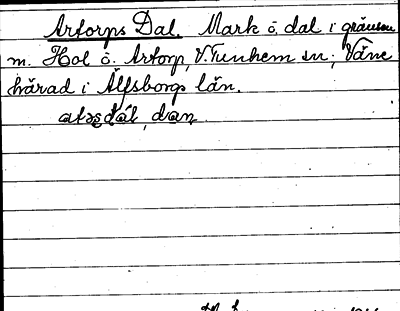 Artorps Dal. Mark o. dal i gränsen
m. Hol o. Artorp, V. Tunhem sn; Väne
härad i Älfsborgs län.